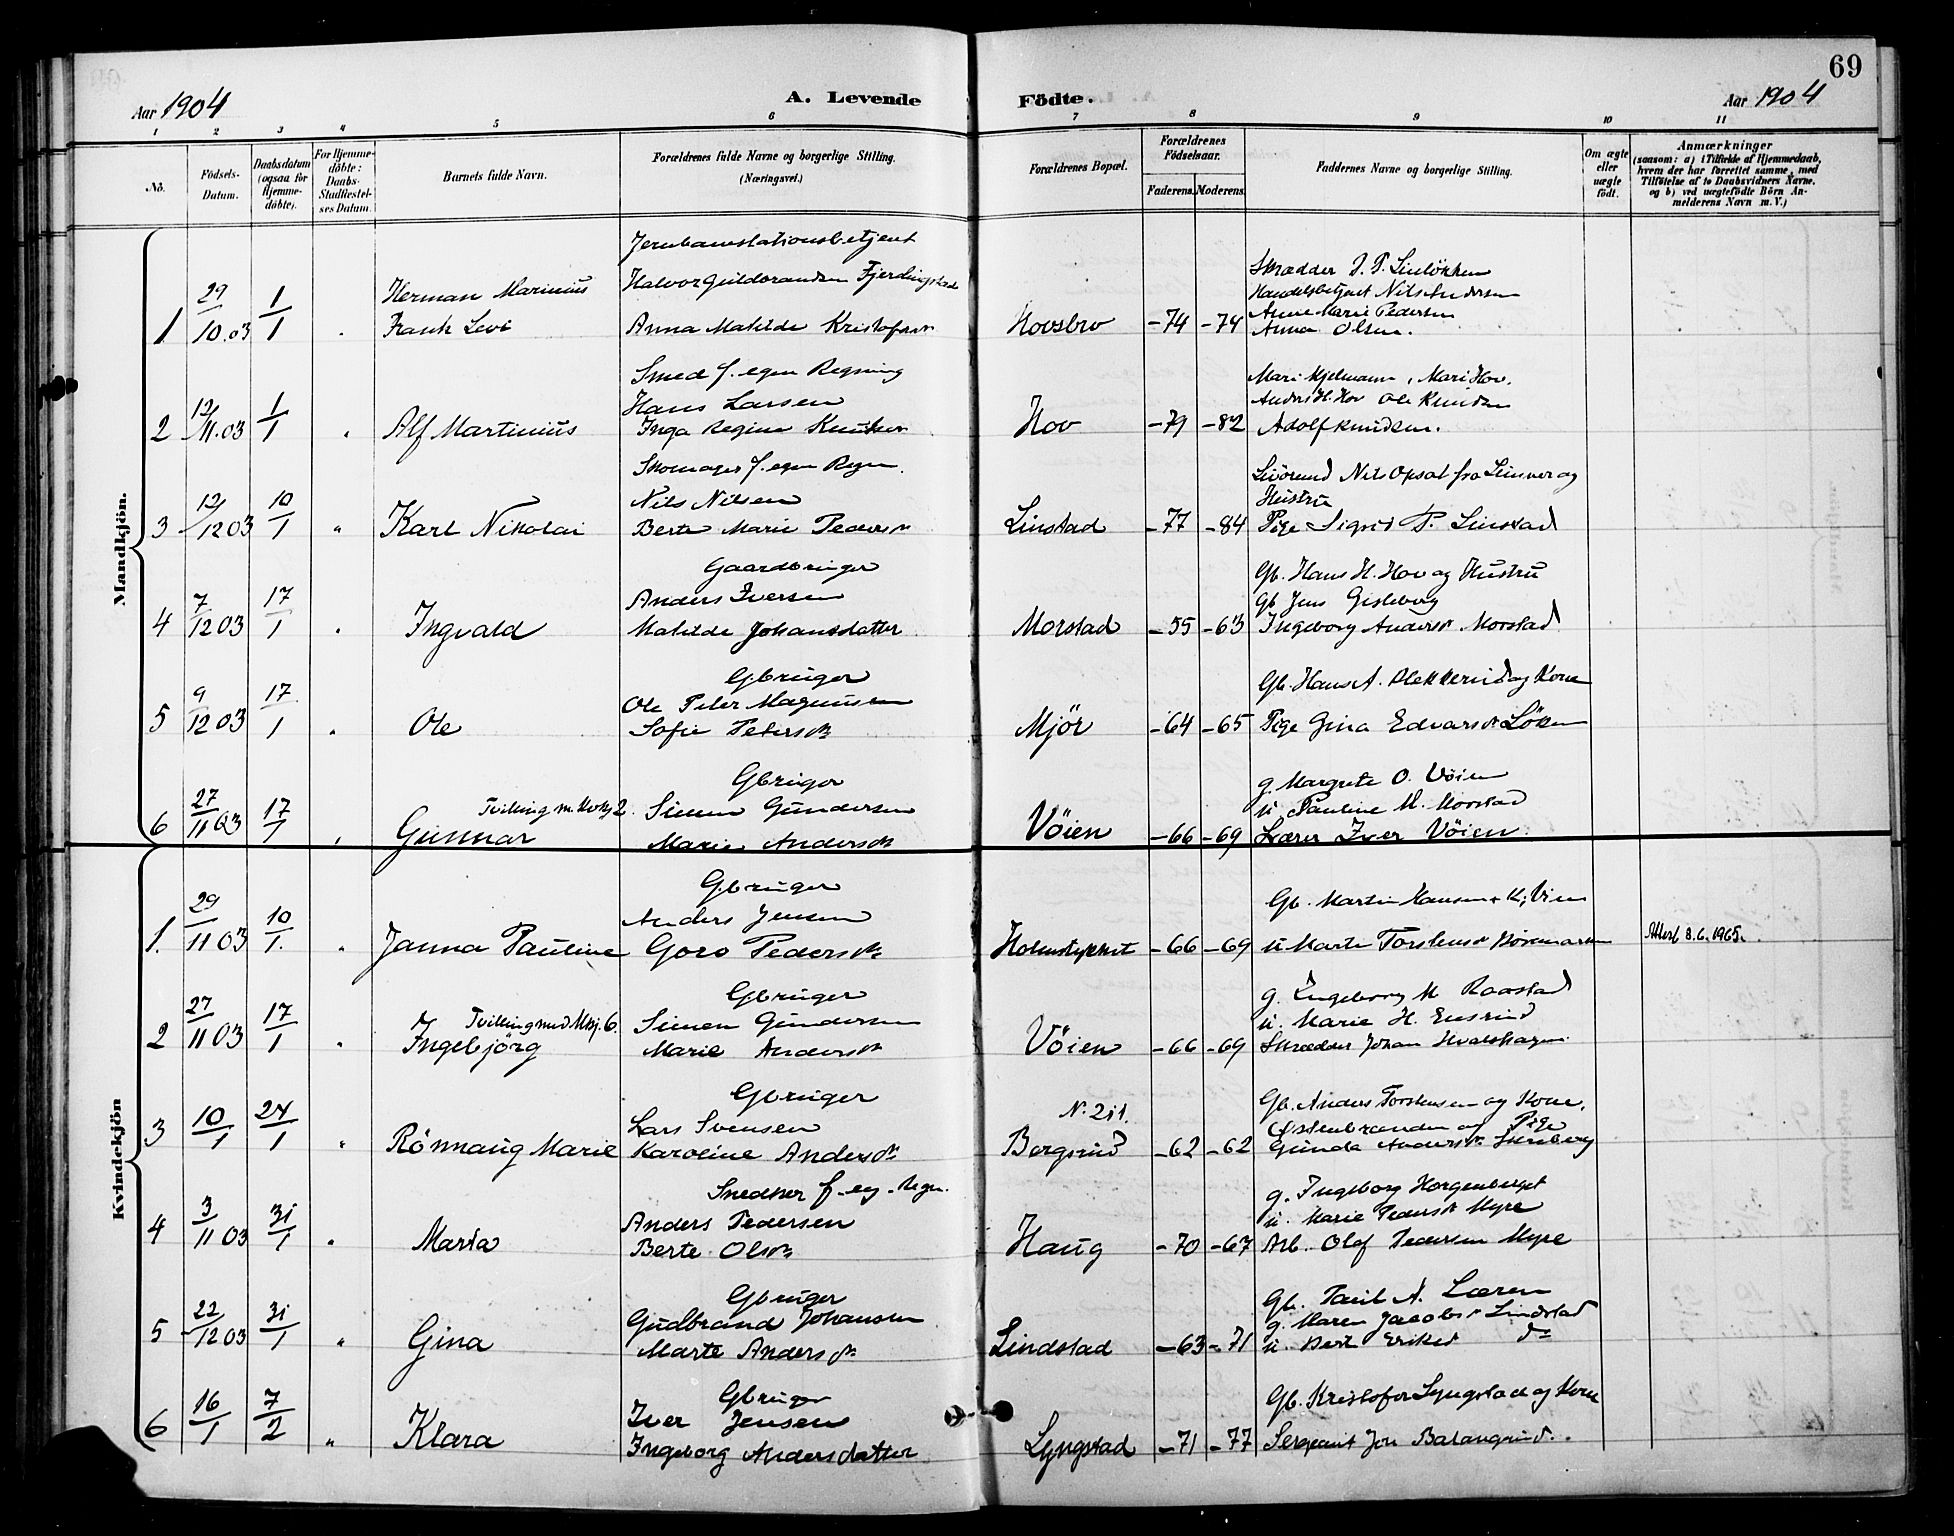 69
Aar 1904
A. Levende
Födte.
Aar 1904
1 2 3 4 5 6 7 8 9 10 11
No.
Födsels-
Datum.
Daabsdatum
(ogsaa for
Hjemme-
döbte).
For Hjemme-
döbte:
Daabs-
Stadfæstel-
ses Datum.
Barnets fulde Navn.
Forældrenes fulde Navne og borgerlige Stilling.
(Næringsvei.)
Forældrenes Bopæl.
Forældrenes
Födselsaar.
Faderens. Moderens.
Faddernes Navne og borgerlige Stilling.
Om ægte
eller
uægte
født.
Anmærkninger
(saasom: a) i Tilfælde af Hjemmedaab,
hvem der har forrettet samme, med
Tilföielse af to Daabsvidners Navne,
og b) ved uægtefödte Börn An-
melderens Navn m. V.)
Mandkjön.
Jernbanestationsbetjent
29 1 Herman Marinius Halvor Guldbrandsen Fjerdingstad
1 10.03 1 " Frank Levi Anna Matilde Kristofersdr Hovsbro -74 -74
Skrædder
Handelsbetjent Nils Andersen
Anne Marie Pedersen
Anna Olsen.
Smed f. egen Regning
12 1 Hans Larsen
2 11.03 1 " Alf Martinius Inga Regine Knutsdr Hov -79 -82
Mari Hjelmann, Mari Hov.
Anders H. Hov Ole Knudsen
Adolf Knudsen.
Skomager f. egen Regn.
12 10 Nils Nilsen
3 12 03 1 " Karl Nikolai Berte Marie Pedersdr Linstad -77 -84
Nils Opsal fra og
Hustru
Pige Sigrid P. Linstad
Gaardbruger
7 17 Anders Iversen
4 12 03 1 " Ingvald Matilde Johansdatter Morstad -55 -63
Gb. Hans H. Hov og Hustru
Gb Jens Gisleberg
Ingeborg Andersdr Morstad
Gbruger
9 17 Ole Peter Magnusen
5 12 03 1 " Ole Sofie Petersdr Mjör -64 -65
Gb. Hans A. og Kone
Pige Gina Edvarsdr Löken
Gbruger
27 17 Tvilling m. Kvkj 2. Simen Gundersen
6 11 03 1 " Gunnar Marie Andersdr Vöien -66 -69
g. Margrete O. Vöien
u Pauline M. Morstad
Lærer Iver Vöien.
Kvindekjön
Gbruger
29 10 Anders Jensen
1. 11 03 1. " Janna Pauline Goro Pedersdr Holmstykket -66 -69
Gb. Martin Hansen + K, Vien
u Marte Torstensdr
Attest 8.6.1965.
Gbruger
27 17 Tvilling med Mkj. 6. Simen Gundersen
2 11 03 1 " Ingebjörg Marie Andersdr Vöien -66 -69
g. Ingeborg M Raastad
u. Marie H. Ensrud
Skrædder Johan Hvalshagen
Gbruger
10 24 Lars Svensen N. 211.
3 1 1 " Rönnaug Marie Karoline Andersdr Bergsrud -62 -62
Gb. Anders Torstensen og Kone,
og Pige
Gunda Andersdr
Snedker f. eg. Regn.
3 31 Anders Pedersen
4 11 03 1 " Marta Berte Olsdr Haug -70 -67
g. Ingeborg Horgenberget
u. Marie Pedersdr Myre
Arb. Olaf Pedersen Myre
Gbruger
22 31 Gudbrand Johansen
5 12 03 1 " Gina Marte Andersdr Lindstad -63 -71
Gb. Paul A. Læren
g. Maren Jacobsdr Lindstad
u. Bert Eriksd do
Gbruger
16 7 Iver Jensen
6 1 2 " Klara Ingeborg Andersdatter Lyngstad -71 -77
Gb. Kristofer Lyngstad og Kone
Sergeant Jon Balangrud.